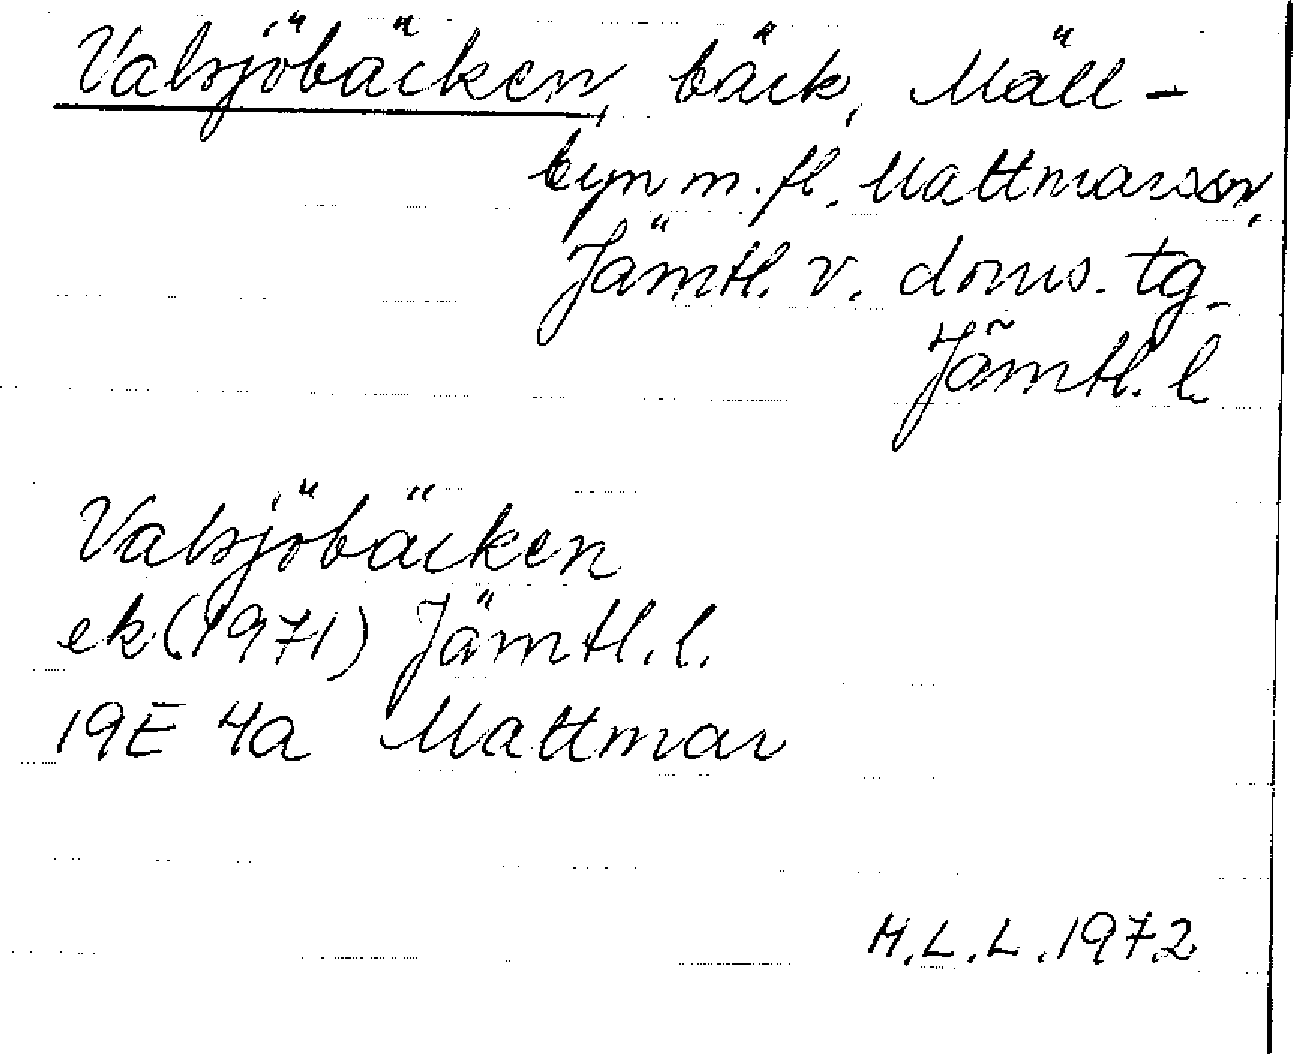 Valsjöbäcken, bäck, Mäll-
byn m. fl. Mattmarssn,
Jämtl. v. doms. tg.
Jämtl. l.
Valsjöbäcken
ek (1971) Jämtl. l.
19E 4a Mattmar
H.L.L. 1972